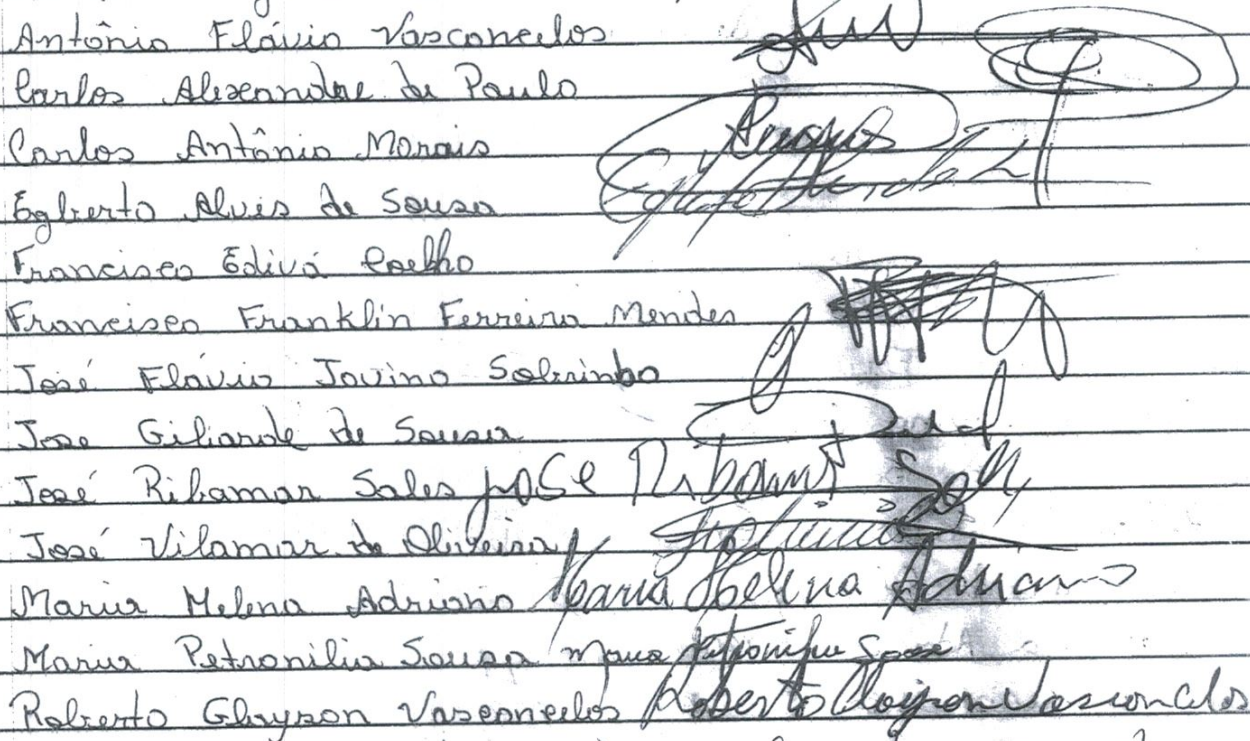 Antônio Flávio Vasconcelos
Carlos Alexandre de Paulo
Carlos Antônio Morais
Egberto Alves de Sousa
Francisco Edivá Coelho
Francisco Franklin Ferreira Mendes
José Flávio Jovino Sobrinho
Jose Giliarde de Sousa
José Ribamar Sales José Ribamar Sales
José Vilamar de Oliveira
Maria Helena Adriano Maria Helena Adriano
Maria Petronilia Sousa Maria Petronilia Sousa
Roberto Glayson Vasconcelos Roberto Glayson Vasconcelos